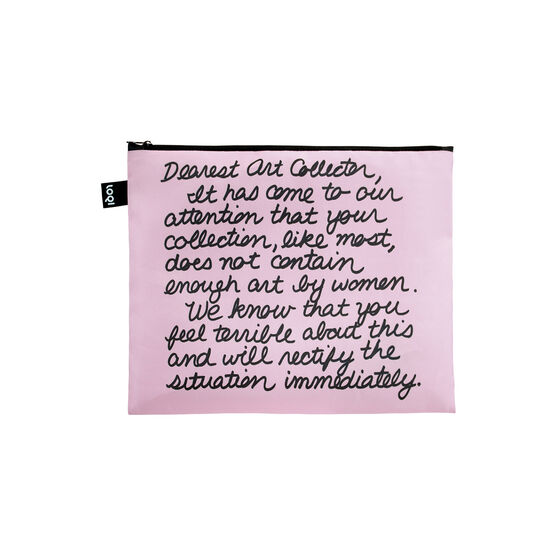 LOQI
Dearest Art Collector,
It has come to our
attention that your
collection, like most,
does not contain
enough art by women.
We know that you
feel terrible about this
and will rectify the
situation immediately.